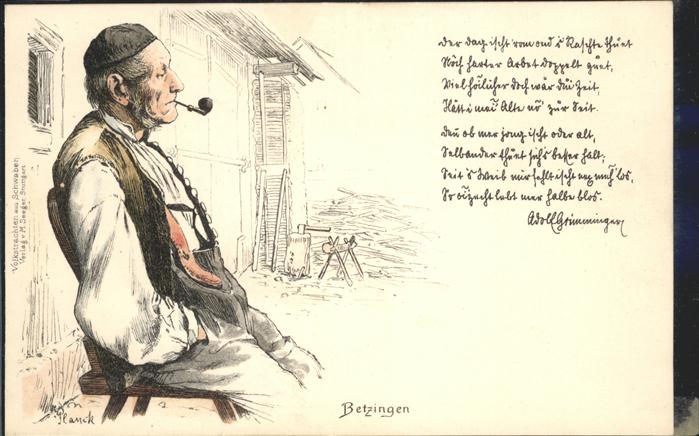 Der Dag ischt rom ond s Raschte thuet
Noch harter Arbet doppelt guet,
Viel hoilicher doch wär dui Zeit,
Hätt i mai Alte no' zur Seit.
Denn ob mer jong ischt oder alt,
Selbander thuet sich's besser halt;
Seit 's Weib mir fehlt ischt nex meh los,
So oizecht lebt mer halbe blos.
Adolf Grimminger
Volkstrachten aus Schwaben
Verlag v. M. Seeger, Stuttgart
Planck
Betzingen